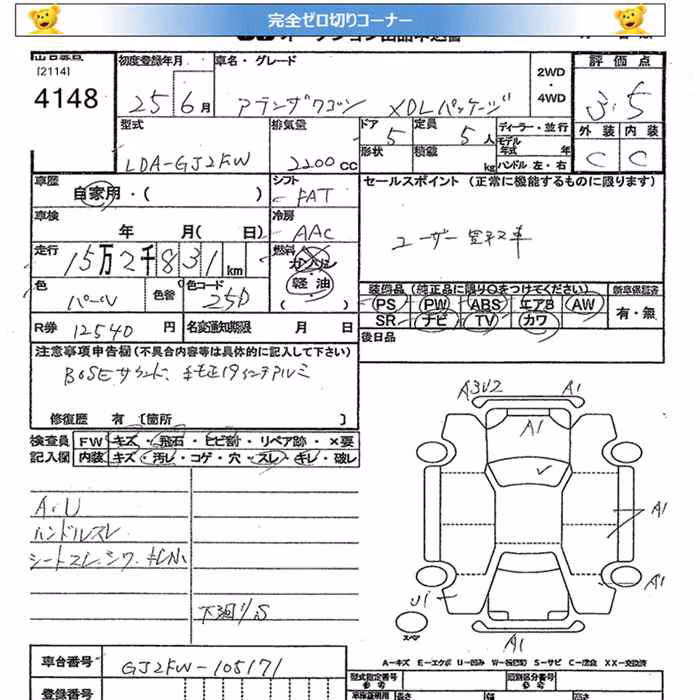 完全ゼロ切りコーナー
[2114]
4148
初度登録年月
25年6月
車名・グレード
アテンザワゴン XDLパッケージ
2WD
・
4WD
評価点
3.5
外装 内装
C C
型式
LDA-GJ2FW
排気量
2200cc
ドア
5
形状
定員
5人
積載
kg
ディーラー・並行
モデル
年式 年
ハンドル 左・右
車歴
自家用・( )
シフト
FAT
セールスポイント (正常に機能するものに限ります)
ユーザー買取車
車検
年 月( 日)
冷房
AAC
走行
15万2千831km
燃料
ガソリン
軽油
( )
色
パール
色替
色コード
25D
装備品(純正品に限り○をつけてください)
PS PW ABS エアB AW
SR ナビ TV カワ
新車保証書
有・無
R券 12540円
名変通知期限 月 日
後日品
注意事項申告欄(不具合内容等は具体的に記入して下さい)
BOSEサウンド、純正19インチアルミ
修復歴 有 [箇所 ]
検査員
記入欄
FW キズ・飛石・ヒビ割・リペア跡・×要
内装 キズ・汚レ・コゲ・穴・スレ・キレ・破レ
A・U
ハンドルスレ
シートスレ・シワ・キレ小
下廻り/S
A3U2 A1
A1
A1
A1
U1
スペア
A1
A-キズ E-エクボ U-凹み W-板金跡 S-サビ C-腐食 XX-交換済
車台番号
GJ2FW-105171
登録番号
型式指定番号
類別区分番号